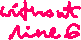 without
line 6